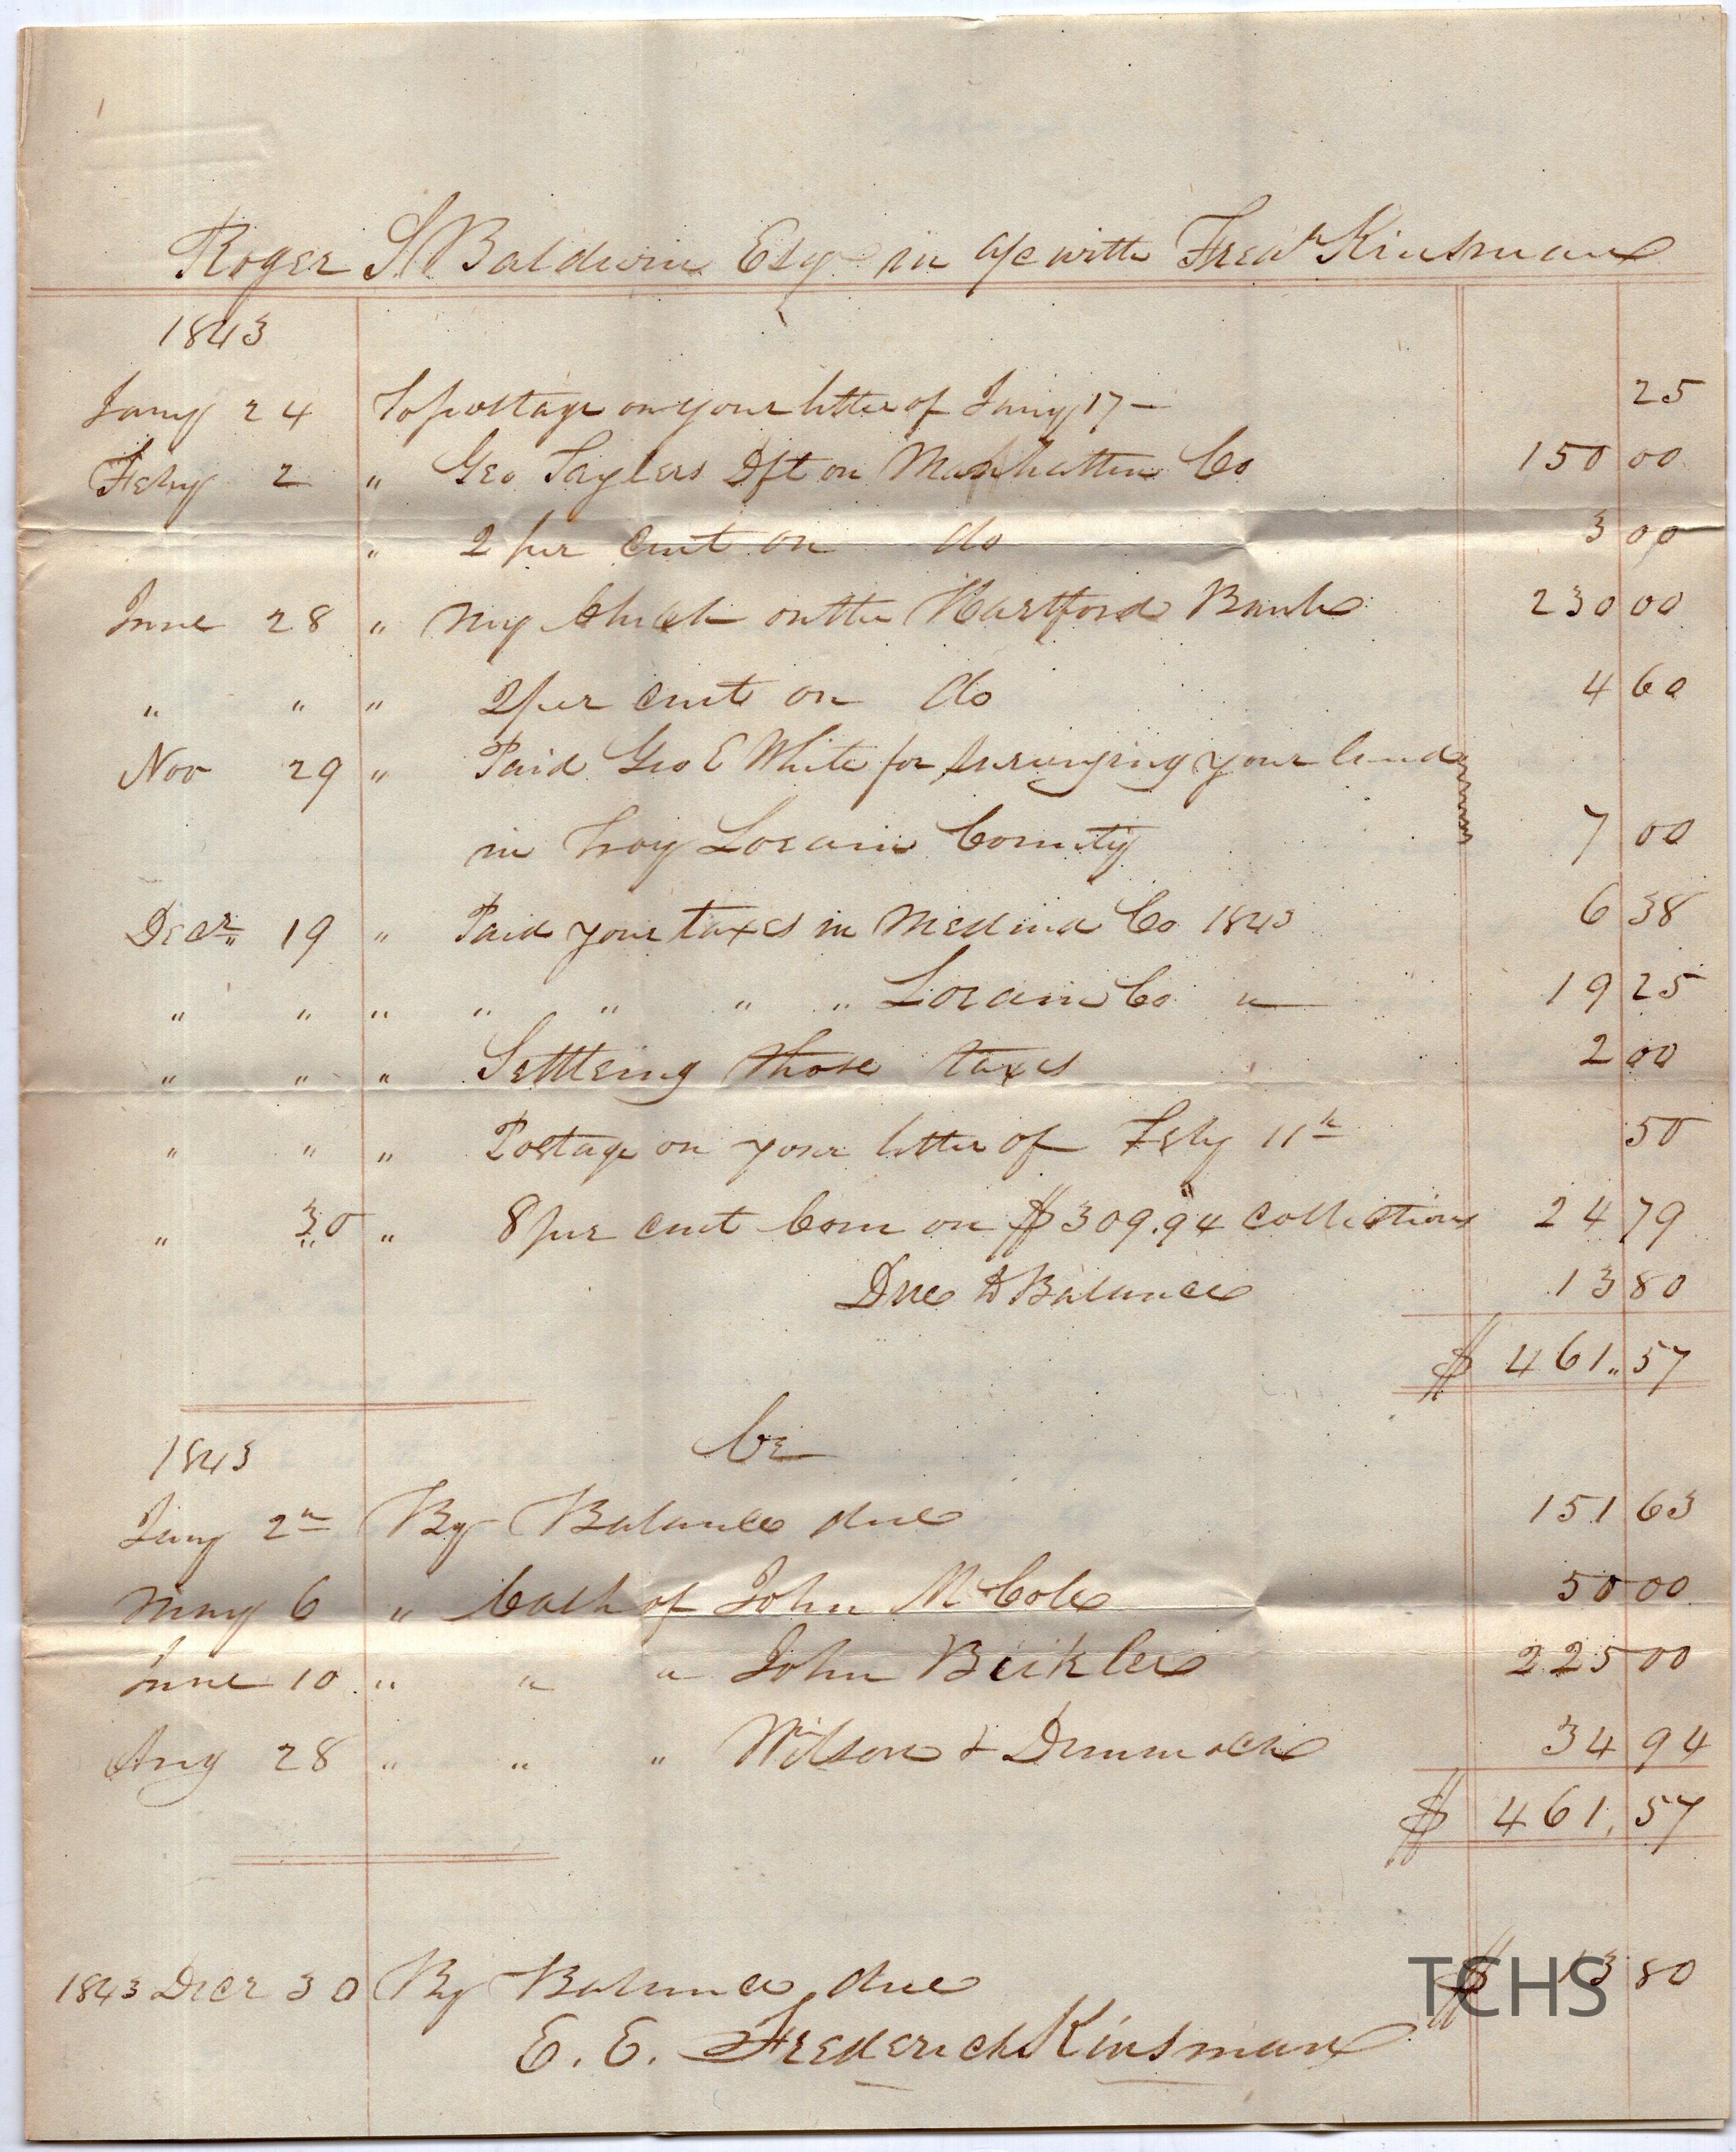 Roger S Baldwin Esq in a/c with Fredk Kinsman
1843
Jany 24 To postage on your letter of Jany 17 — 25
Feby 2 " Geo Taylers Dft on Manhatten Co 150 00
" 2 per cent on do 3 00
June 28 " my Check on the Hartford Bank 230 00
" " " 2 per cent on do 4 60
Nov 29 " Paid Geo E White for surveying your land
in Troy Lorain County 7 00
Decr 19 " Paid your taxes in Medina Co 1843 6 38
" " " " " " " Lorain Co " 19 25
" " " Settleing those taxes 2 00
" " " Postage on your letter of Feby 11th 50
" 30 " 8 per cent Com on $309.94 collections 24 79
Due to Balance 13 80
$ 461.57
Cr
1843
Jany 2nd By Balance due 151 63
May 6 " Cash of John McCole 50 00
June 10 " " " John Beikler 225 00
Aug 28 " " " Wilson & Dimmock 34 94
$ 461.57
1843 Decr 30 By Balance due $ 13 80
E. E. Frederick Kinsman
TCHS